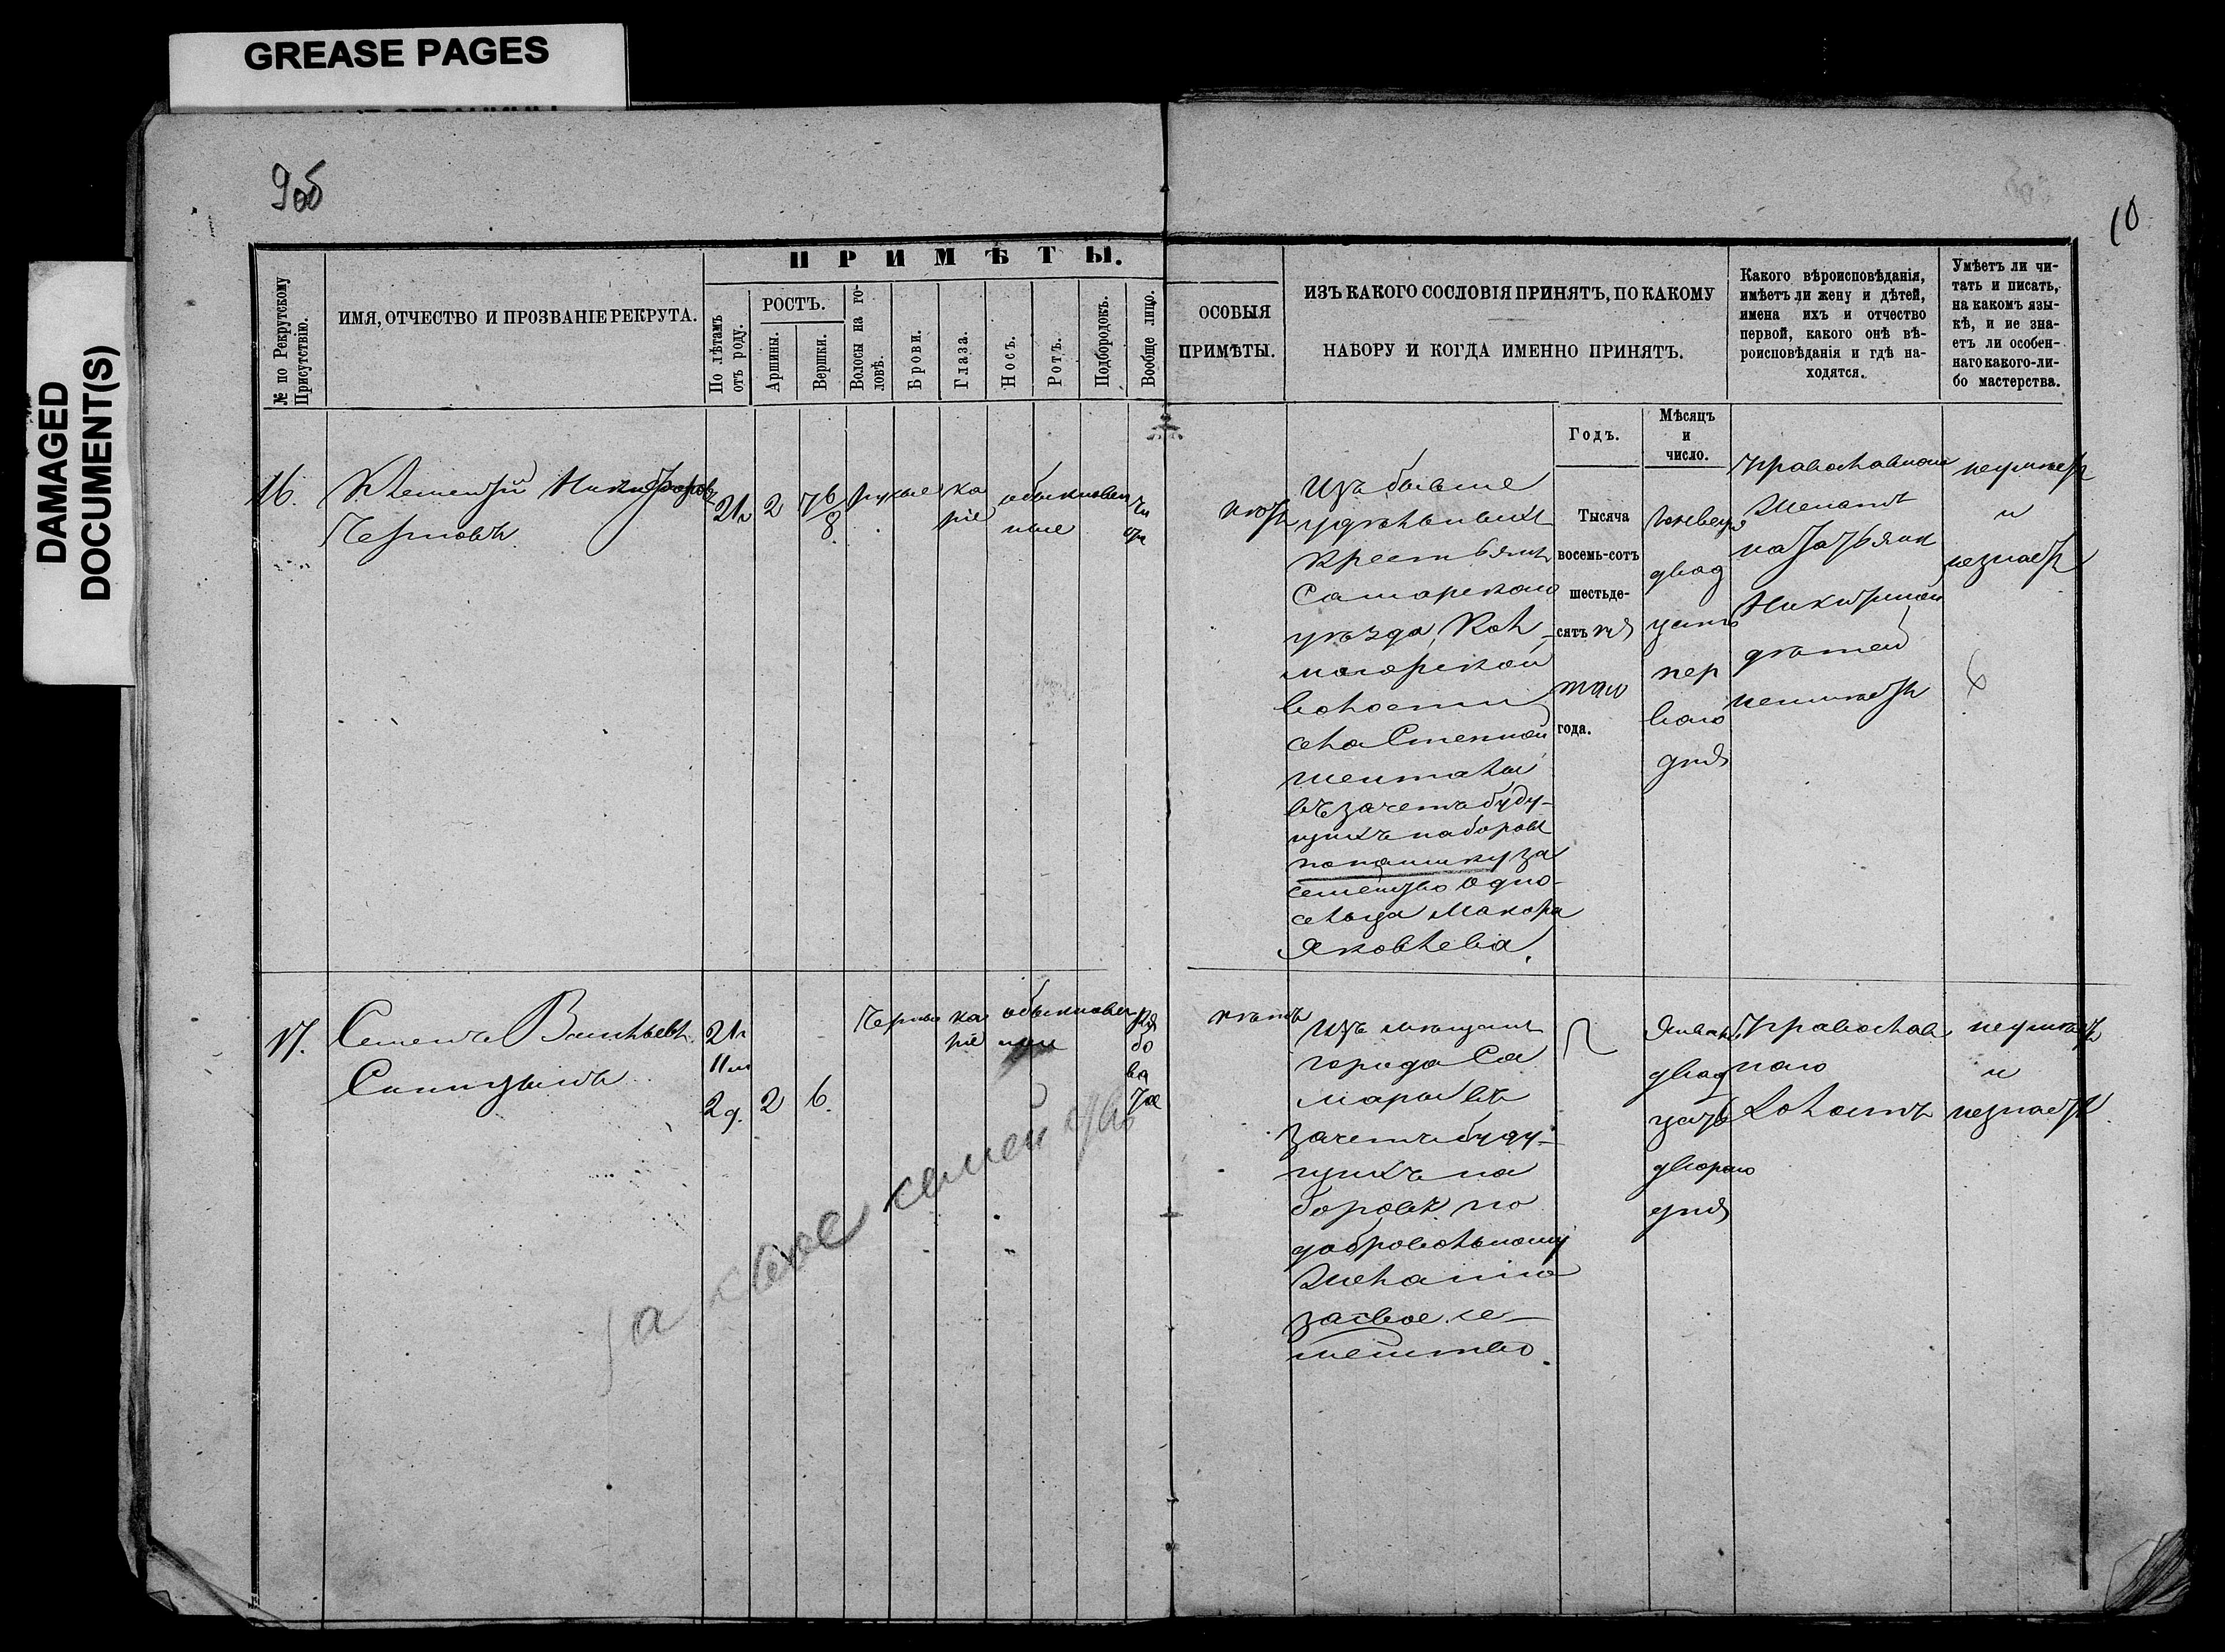 GREASE PAGES
DAMAGED
DOCUMENT(S)
9об
10
ПРИМѢТЫ.
№ по Рекрутскому
Присутствію.
ИМЯ, ОТЧЕСТВО И ПРОЗВАНІЕ РЕКРУТА.
По лѣтамъ
отъ роду.
РОСТЪ.
Аршины.
Вершки.
Волосы на го-
ловѣ.
Брови.
Глаза.
Носъ.
Ротъ.
Подбородокъ.
Вообще лицо.
ОСОБЫЯ
ПРИМѢТЫ.
ИЗЪ КАКОГО СОСЛОВІЯ ПРИНЯТЪ, ПО КАКОМУ
НАБОРУ И КОГДА ИМЕННО ПРИНЯТЪ.
Годъ.
Мѣсяцъ
и
число.
Какого вѣроисповѣданія,
имѣетъ ли жену и дѣтей,
имена ихъ и отчество
первой, какого онѣ вѣ-
роисповѣданія и гдѣ на-
ходятся.
Умѣетъ ли чи-
тать и писать,
на какомъ язы-
кѣ, и не зна-
етъ ли особен-
наго какого-ли-
бо мастерства.
16.
Клементій Никифоровъ
Черновъ
21
2
7 6/8
русые
ка
ріе
обыкновен
ные
чи
нѣтъ
Изъ бывше
удѣльныхъ
крестьянъ
Самарскаго
уѣзда, Кол
волости
села Степной
Шенталы
въ зачетъ буду-
щихъ наборовъ
за
семейство одно-
сельца Макара
Яковлева.
Тысяча
восемь-сотъ
шестьде-
сятъ
того
года.
Января
двад
цать
пер
ваго
дня
Православнаго
Женатъ
на Татьянѣ
Никитиной
дѣтей
неимѣетъ
неумѣетъ
и
незнаетъ
17.
Семенъ Васильевъ
21
11 м
2 д.
2
6.
Черные
ка
ріе
обыкновен
ные
ря
бо
ва
то
За свое семейство
нѣтъ
Изъ мѣщанъ
города Са
мары въ
зачетъ буду-
щихъ на
боровъ по
добровольному
желанію
за свое се-
мейство.
Января
двад
цать
втораго
дня
Православ
наго
Холостъ
неумѣетъ
и
незнаетъ.